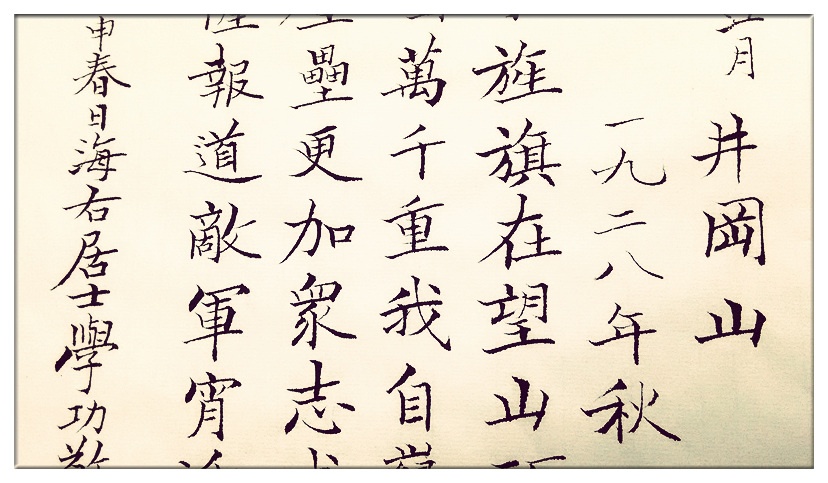 月 井岡山
一九二八年秋
旌旗在望山
萬千重我自
壘更加衆志
報道敵軍宵
申春日海右居士學功